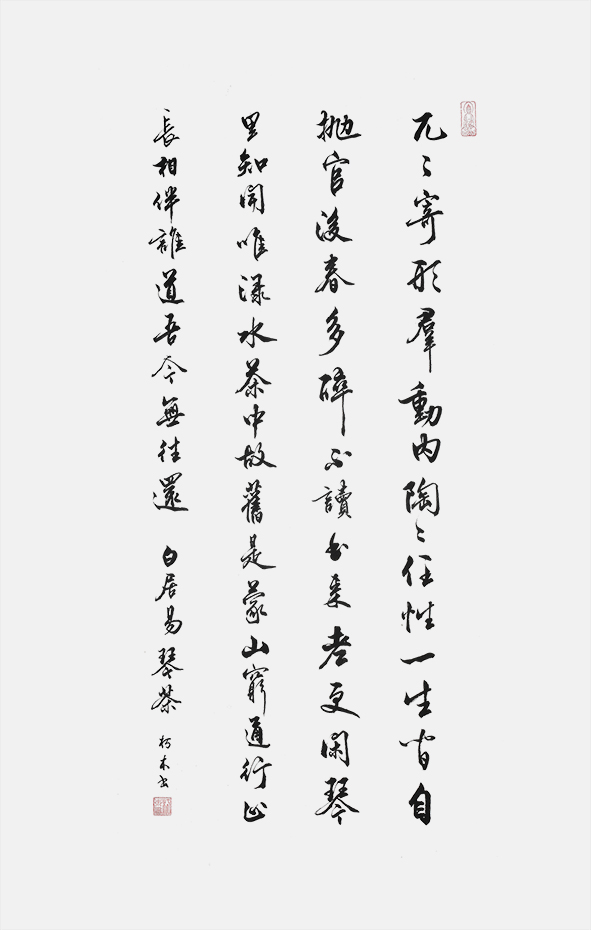 兀〻寄形羣動內陶〻任性一生間自
抛官後春多醉不讀書來老更閑琴
里知聞唯淥水茶中故舊是蒙山窮通行止
長相伴誰道吾今無往還 白居易琴茶 柯木書